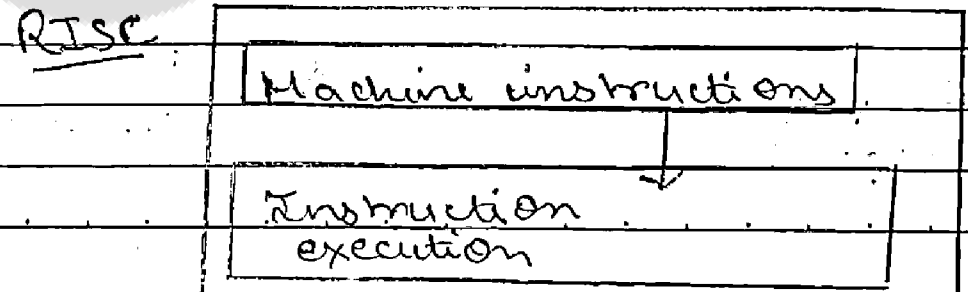 RISC
Machine instructions
Instruction
execution